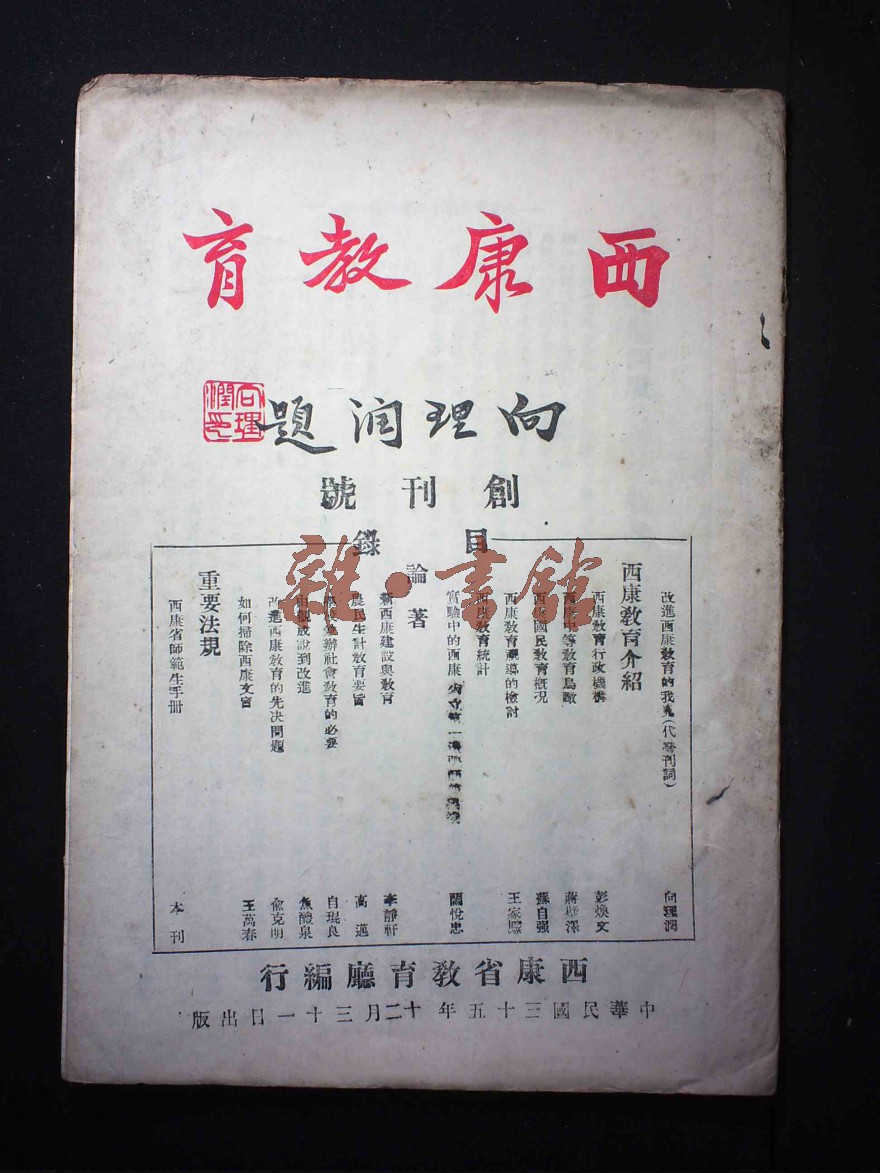 西康教育
向理润題
向理潤印
創刊號
目錄
改進西康教育的我見(代發刊詞) 向理潤
西康教育介紹
西康教育行政機構 彭煥文
西康中等教育鳥瞰 蔣
西康國民教育概况 蘇自强
西康教育視導的檢討 王家
西康教育統計
實驗中的西康 關悅忠
論著
新西康建設與教育 李靜軒
農民生計教育要旨 高邁
社會教育的必要 白琨良
說到改進 魚醴泉
改進西康教育的先决問題 俞克明
如何掃除西康文盲 王萬春
重要法規
西康省師範生手册 本刊
西康省教育廳編行
中華民國三十五年十二月三十一日出版
雜·書館